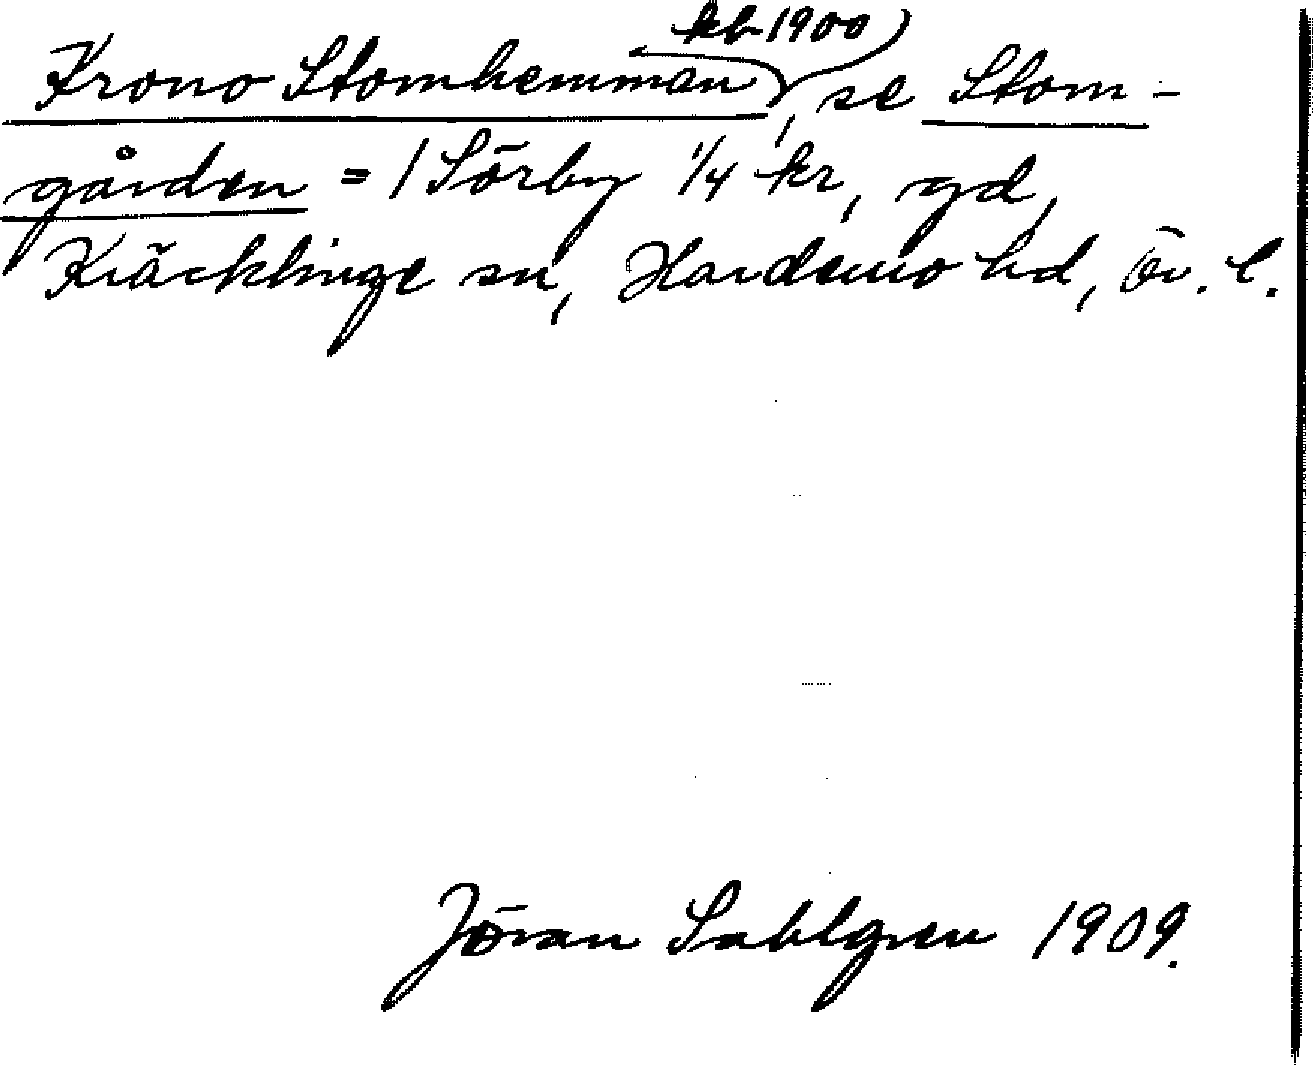 kb 1900)
Krono Stomhemman, se Stom-
gården = 1 Sörby 1/4 kr, gd,
Kräcklinge sn, Hardemo hd, Ör. l.
Jöran Sahlgren 1909.